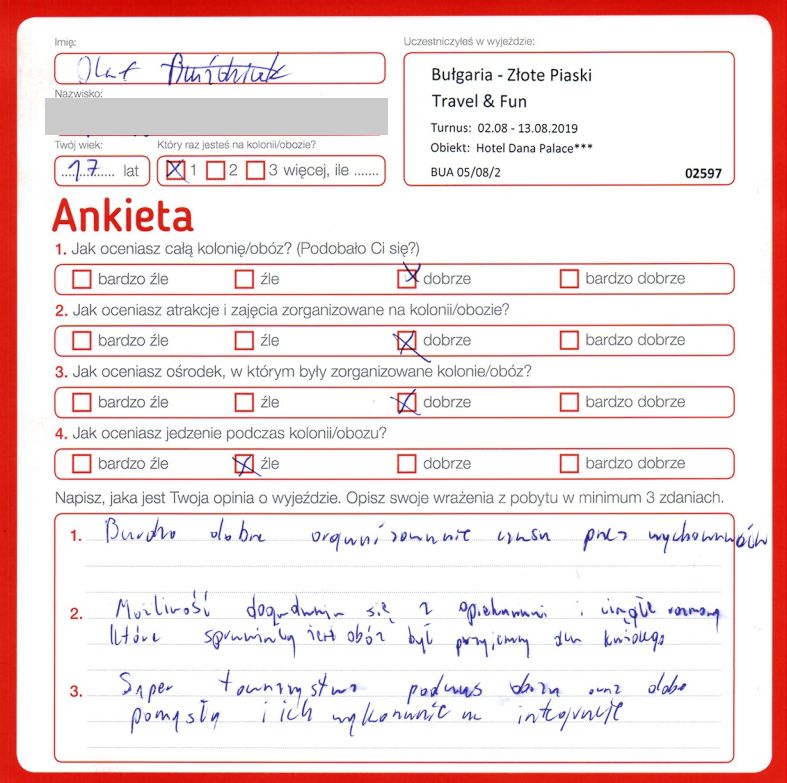 Imię:
Olaf
Nazwisko:
Twój wiek:
17 lat
Który raz jesteś na kolonii/obozie?
1 2 3 więcej, ile .......
Uczestniczyłeś w wyjeździe:
Bułgaria - Złote Piaski
Travel & Fun
Turnus: 02.08 - 13.08.2019
Obiekt: Hotel Dana Palace***
BUA 05/08/2 02597
Ankieta
1. Jak oceniasz całą kolonię/obóz? (Podobało Ci się?)
bardzo źle źle dobrze bardzo dobrze
2. Jak oceniasz atrakcje i zajęcia zorganizowane na kolonii/obozie?
bardzo źle źle dobrze bardzo dobrze
3. Jak oceniasz ośrodek, w którym były zorganizowane kolonie/obóz?
bardzo źle źle dobrze bardzo dobrze
4. Jak oceniasz jedzenie podczas kolonii/obozu?
bardzo źle źle dobrze bardzo dobrze
Napisz, jaka jest Twoja opinia o wyjeździe. Opisz swoje wrażenia z pobytu w minimum 3 zdaniach.
1. Bardzo dobre organizowanie czasu przez wychowawców
2. Możliwość dogadania się z opiekunami i ciągłe rozmowy
które sprawiały iert obóz był przyjemny dla każdego
3. Super towarzystwo podczas obozu oraz dobre
pomysły i ich wykonanie na integracje